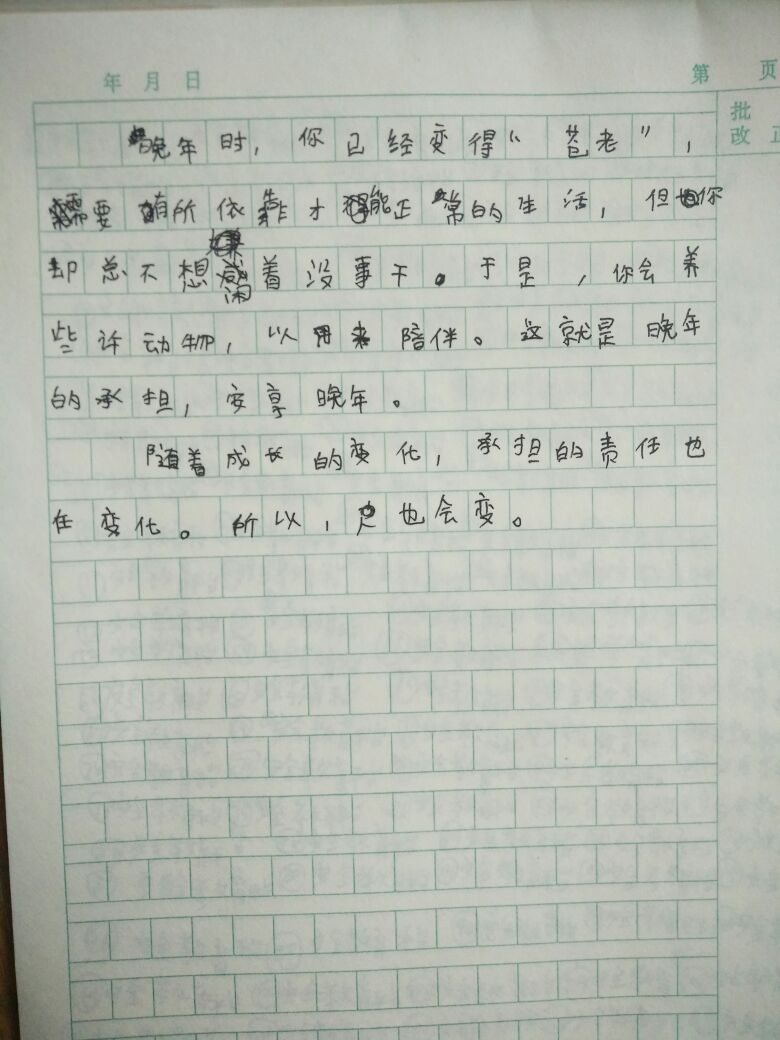 年 月 日
第 页
批
改 正
晚年时，你已经变得“苍老”，
需要有所依靠才能正常的生活，但你
却总不想闲着没事干。于是，你会养
些许动物，以用来陪伴。这就是晚年
的承担，安享晚年。
随着成长的变化，承担的责任也
在变化。所以，也会变。